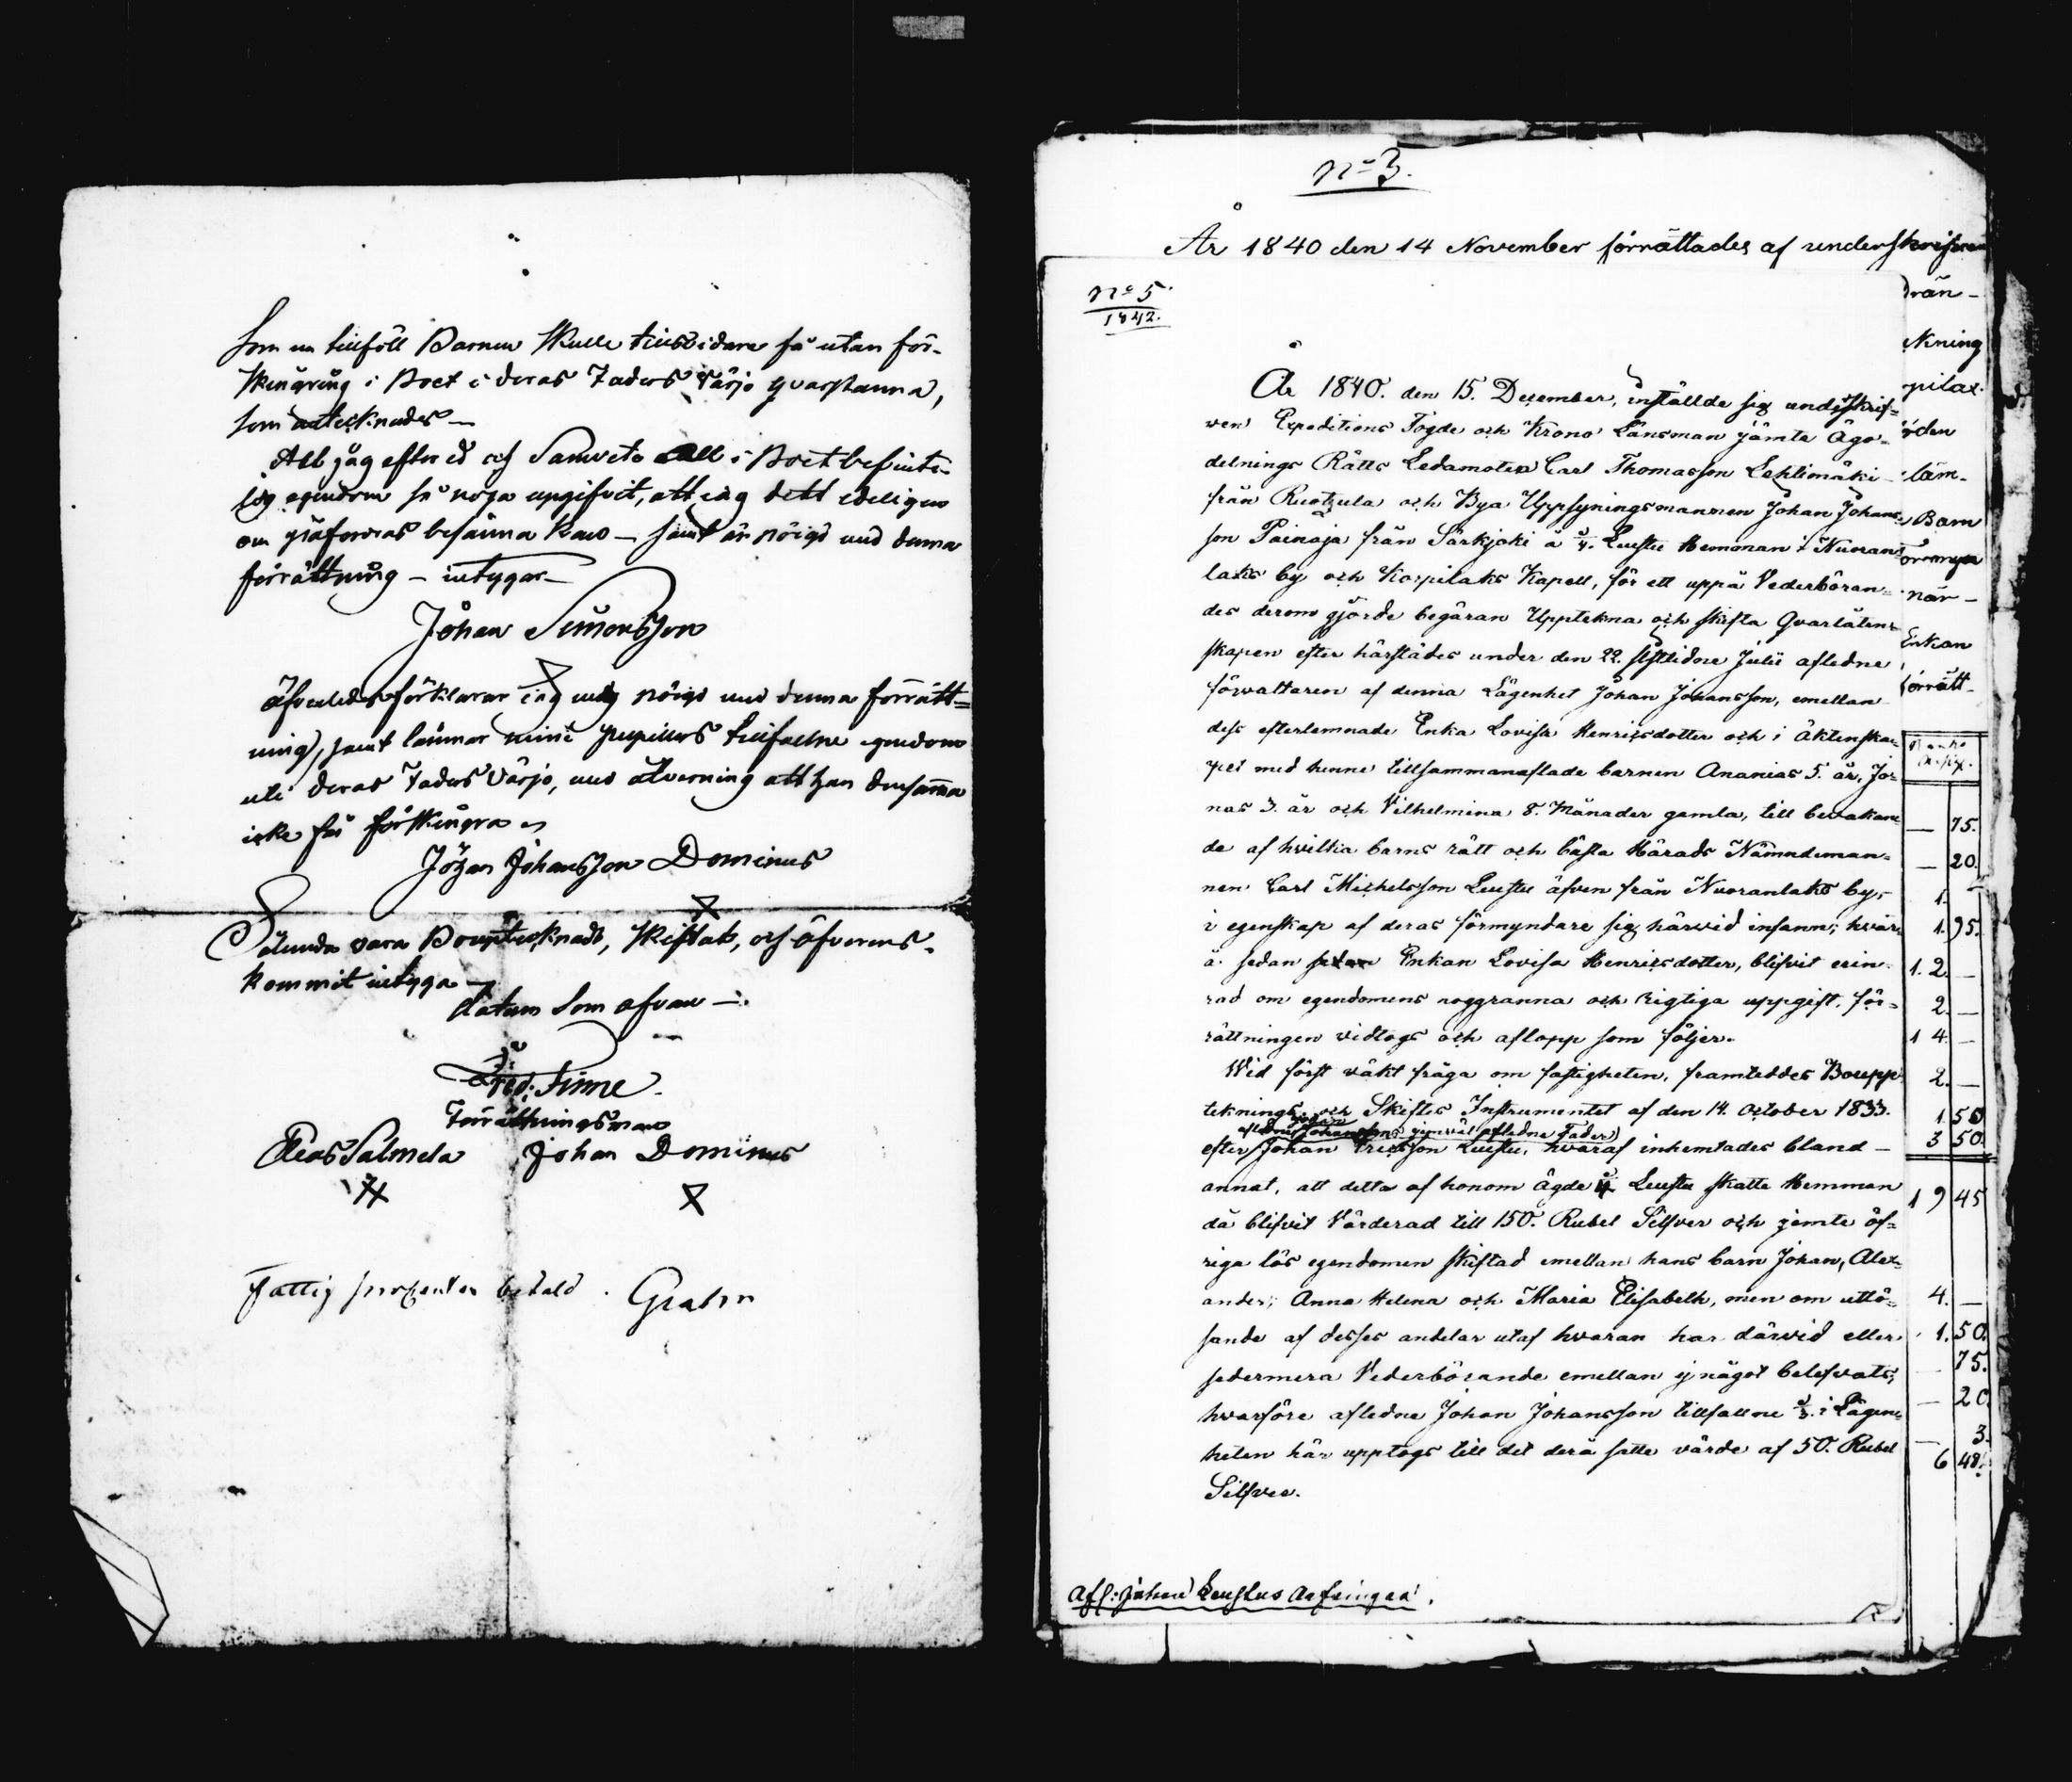 som nu tillföll Barnen skulle tillsvidare få utan för-
skingring i Boet i deras Faders värjo qvarstanna,
som antecknades —
Att jag efter ed och Samvete all i Boet befinte-
lig egendom så noga uppgifvit, att jag dett edeligen
om så fordras besanna kan — samt är nöigd med denna
förrättning — intygar —
Johan Simonsson
Äfvenledes förklarar jag mig nöigd med denna förrätt-
ning, samt lämnar mine pupillers tillfallne egendom
uti deras Faders värjo, med åtvarning att han densamma
icke får förskingra
Johan Johansson Dominus
Sålunda vara Bouptecknadt, skiftat, och öfverens-
kommit intyga —
datum som ofvan —
Fred: Finne
Förrättningsman
Elias Salmela Johan Dominus
Fattig procenten betald. Grahn
No 3.
År 1840 den 14 November förrättades af underskrifven
No 5.
1842.
drän-
kning
rpilax
den
läm-
Barn
örmyn
när-
Enkan
förrätt-
År 1840. den 15. December, inställde sig undeskrif-
ven Expeditions Fogde och Krono Länsman jämte Ägo-
delnings Rätts Ledamoten Carl Thomasson Lehtimäki
från Ruotzula och Bya Uppsyningsmannen Johan Johans-
son Painaja från Särkjoki å 1/4. Leustu Hemman i Nuoran
laks by och Korpilaks Kapell, för ett uppå Vederböran-
des derom gjorde begäran Upptekna och skifta Qvarlåten-
skapen efter härstädes under den 22. sistlidne Julii afledne
förvaltaren af denna Lägenhet Johan Johansson, emellan
dess efterlemnade Enka Lovisa Henricsdotter och i äktenska-
pet med henne tillsammanaflade barnen Ananias 5. år, Jo-
nas 3. år och Vilhelmina 8. Månader gamla, till bevakan-
de af hvilka barns rätt och bästa Härads Nämndeman-
nen Carl Michelsson Leustu äfven från Nuoranlaks by,
i egenskap af deras förmyndare sig härvid infann; hvar-
å sedan sedan Enkan Lovisa Henricsdotter, blifvit erin-
rad om egendomens noggranna och rigtiga uppgift, för-
rättningen vidtogs och aflopp som följer.
Wid först väkt fråga om fastigheten, framteddes Boupp
teknings och Skiftes Instrumentet af den 14. October 1833.
afledne Johan Johanssons jemväl afledne Fader
efter Johan Ericsson Leustu, hvaraf inhemtades bland
annat, att detta af honom ägde 1/4 Leustu skatte Hemman
då blifvit Värderad till 150. Rubel Silfver och jemte öf-
riga lös egendomen skiftad emellan hans barn Johan, Alex-
ander, Anna Helena och Maria Elisabeth, men om utlö-
sande af desses andelar utaf hvaran har därvid eller
sedermera Vederbörande emellan ej något belefvats;
hvarföre afledne Johan Johansson tillfallne 1/3. i Lägen-
heten här upptogs till det derå satte värde af 50. Rubel
Silfver.
— 75.
— 20.
1. —
1. 95.
1. 2. —
2. —
1 4. —
2. —
1. 50
3 50.
1 9 45
4. —
1. 50.
— 75.
— 20
— 3.
6 48.
Afl: Johan Leustus Arfvingar.